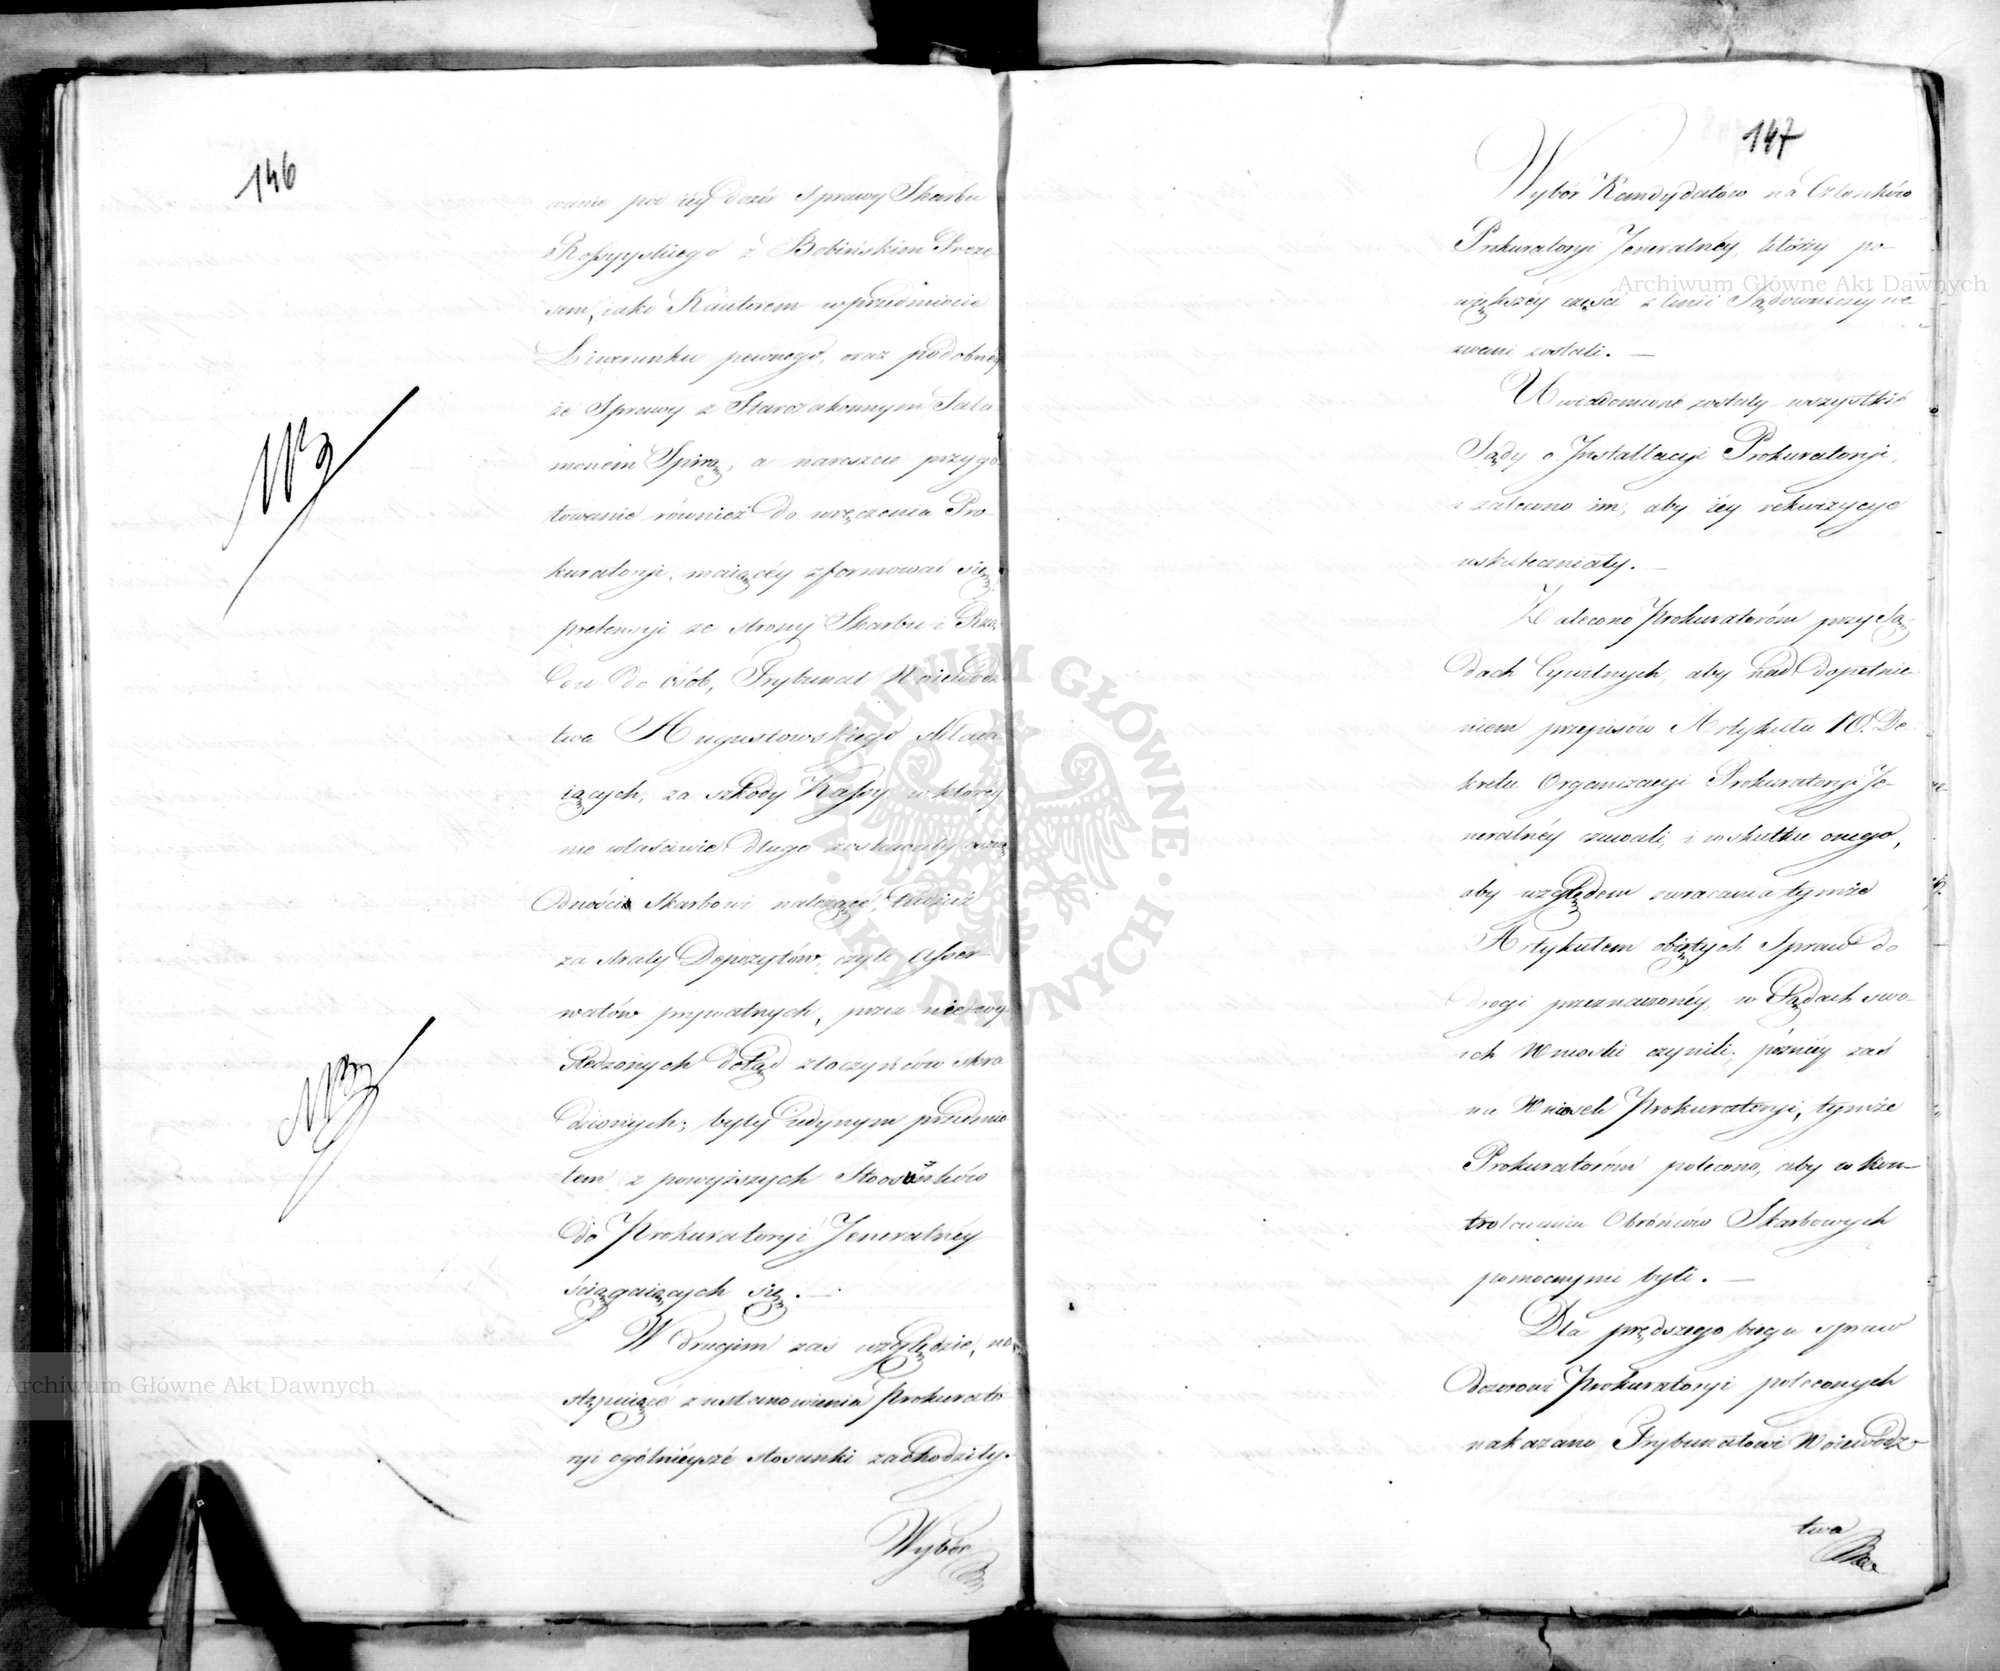 146
wanie pod iéy dozór Sprawy Skarbu
Rossyyskiego z Bobińskim Preze-
sem, iako Kautorem w przedmiocie
Liwerunku pewnego, oraz podobnéy
że Sprawy z Starozakonnym Salo
monem Spirą, a nareszcie przygo-
towanie również do wręczenia Pro-
kuratoryi, maiącéy zformować się
pretensyi ze strony Skarbu i Rzą-
du do osób, Trybunał Woiewódz-
twa Augustowskiego składa-
iących, za szkody Kassy w któréy
nie właściwie długo zostawały
Skarbowi należące, tudzież
za straty Depozytów, czyli Asser-
watów prywatnych, przez nie wy-
śledzonych dotąd złoczyńców skra
dzionych; były iedynym przedmio
tem z powyższych Stosunków
do Prokuratoryi Jeneralnéy
ściągaiących się. —
W drugim zaś względzie, na-
stępuiące z ustanowienia Prokurato-
ryi ogólnieysze stosunki zachodziły.
Wybór
147
Wybór Kandydatów na Członków
Prokuratoryi Jeneralnéy, którzy po
większéy części z linii Sądowniczéy we
zwani zostali. —
Uwiadomione zostały wszystkie
Sądy o Installacyi Prokuratoryi,
i zalecono im, aby iéy rekwizycye
uskuteczniały. —
Zalecono Prokuratorom przy Są-
dach Cywilnych, aby nad dopełnie-
niem przepisów Artykułu 10. De-
kretu Organizacyi Prokuratoryi Je-
neralnéy czuwali, i w skutku onego,
aby względem zwracania tymże
Artykułem obiętych Spraw do
drogi przeznaczonéy, w Sądach swo-
ich Wnioski czynili; późniéy zaś
na Wniosek Prokuratoryi, tymże
Prokuratorom polecono, aby w kon-
trolowaniu Obrońców Skarbowych
pomocnymi byli. —
Dla prędszego biegu spraw
dozorowi Prokuratoryi poleconych
nakazano Trybunałowi Woiewódz-
twa
Archiwum Główne Akt Dawnych
Archiwum Główne Akt Dawnych
ARCHIWUM GŁÓWNE AKT DAWNYCH